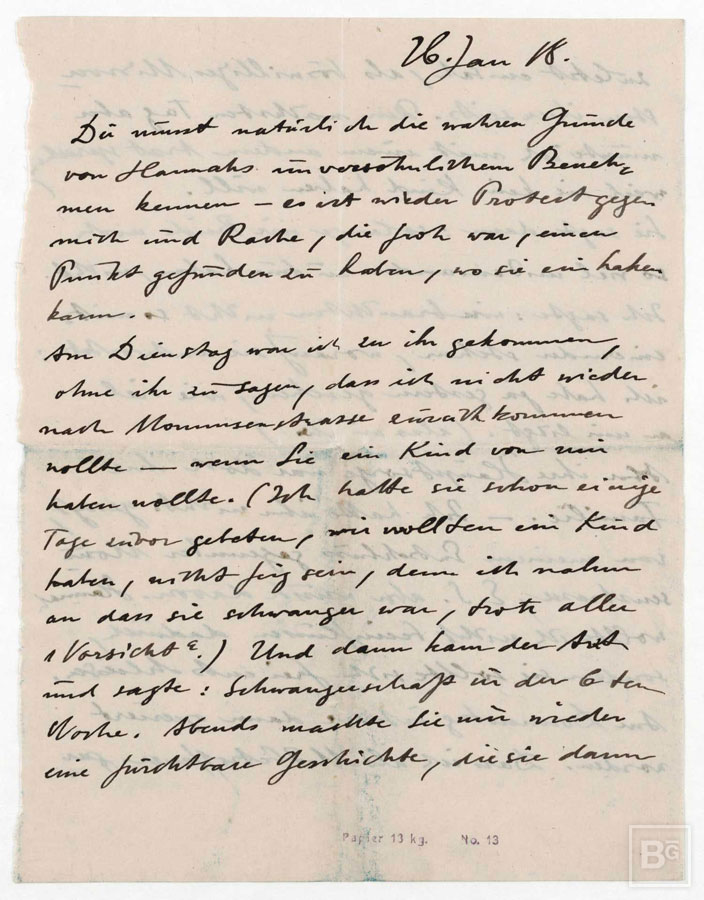 26. Jan 18.
Du musst natürlich die wahren Gründe
von Hannahs unversöhnlichem Beneh-
men kennen — es ist wieder Protest gegen
mich und Rache, die froh war, einen
Punkt gefunden zu haben, wo sie ein haken
kann.
Am Dienstag war ich zu ihr gekommen,
ohne ihr zu sagen, dass ich nicht wieder
nach Mommsenstrasse zurückkommen
wollte — wenn Sie ein Kind von mir
haben wollte. (Ich hatte sie schon einige
Tage zuvor gebeten, wir wollten ein Kind
haben, nicht feig sein, denn ich nahm
an dass sie schwanger war, trotz aller
„Vorsicht“.) Und dann kam der Arzt
und sagte: Schwangerschaft in der 6ten
Woche. Abends machte Sie mir wieder
eine furchtbare Geschichte, die sie dann
Papier 13 kg. No. 13
BG